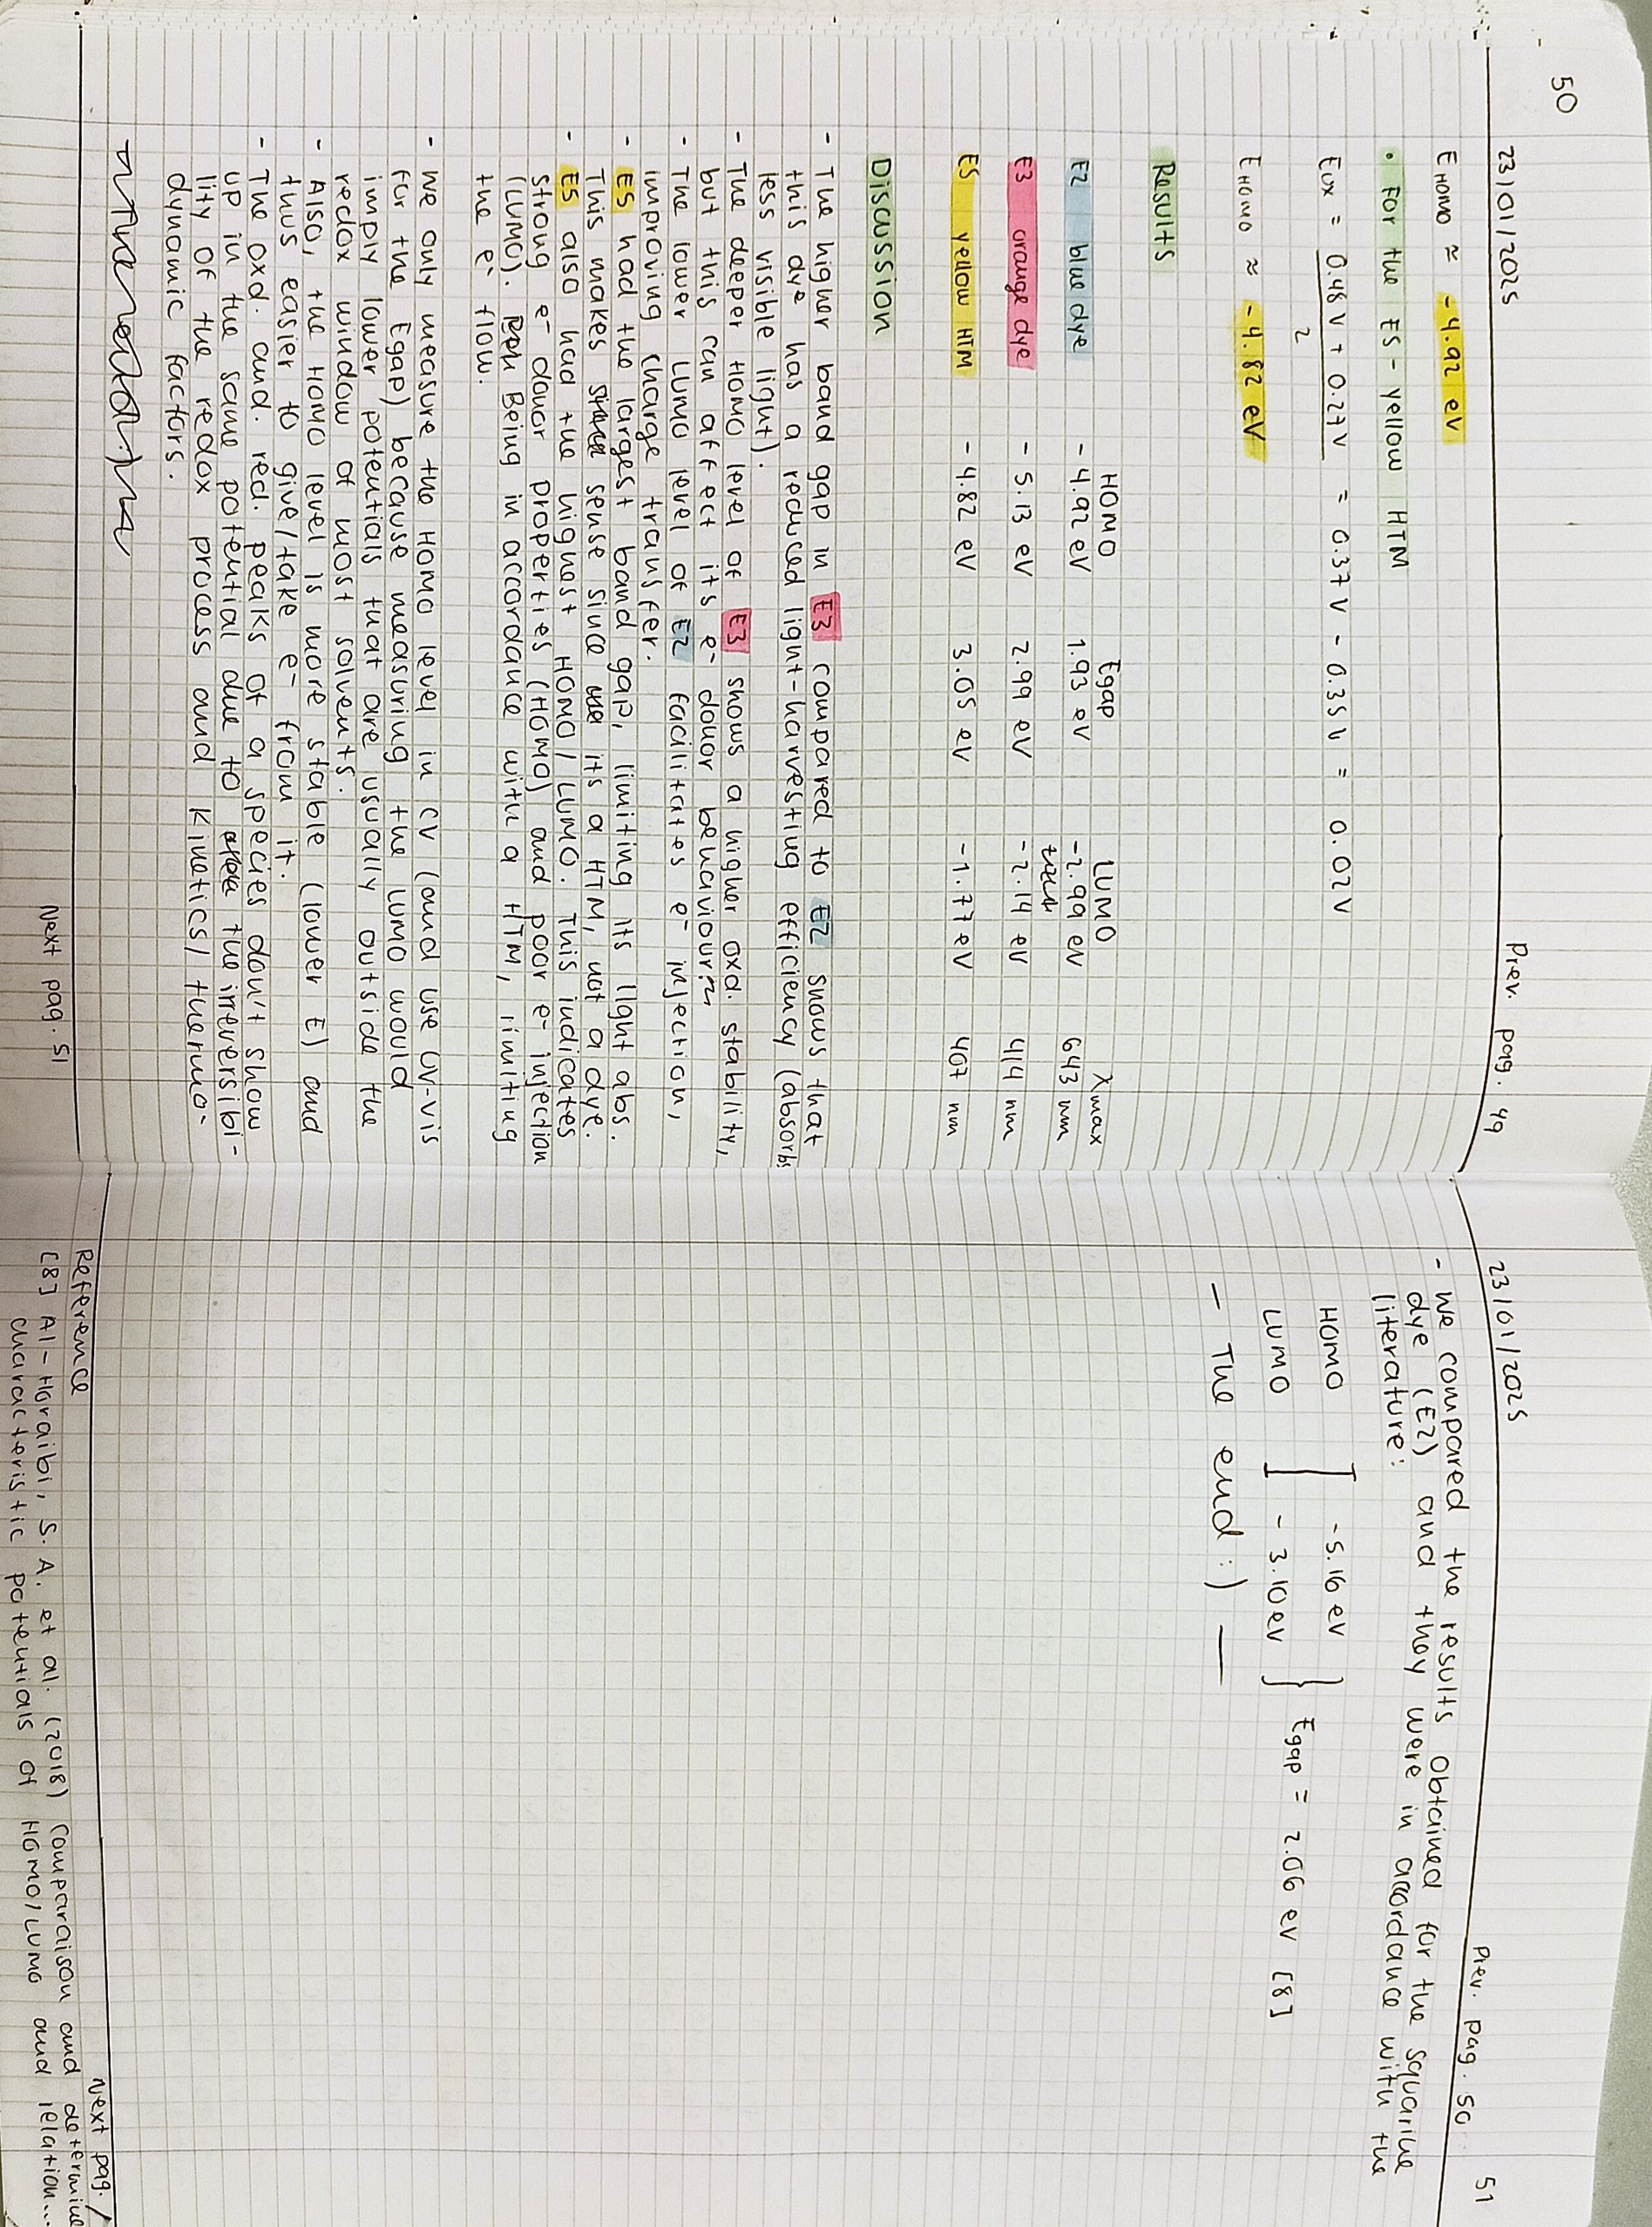 50
23/01/2025
Prev. pag. 49
EHOMO ≈ -4.92 eV
• For the E5 - yellow HTM
Eox = 0.48 V + 0.27 V / 2 = 0.37 V - 0.35 V = 0.02 V
EHOMO ≈ -4.82 eV
Results
HOMO Egap LUMO λmax
E2 blue dye -4.92 eV 1.93 eV -2.99 eV 643 nm
E3 orange dye -5.13 eV 2.99 eV -2.14 eV 414 nm
E5 yellow HTM -4.82 eV 3.05 eV -1.77 eV 407 nm
Discussion
- The higher band gap in E3 compared to E2 shows that
this dye has a reduced light-harvesting efficiency (absorbs
less visible light).
- The deeper HOMO level of E3 shows a higher oxd. stability,
but this can affect its e- donor behaviour.
- The lower LUMO level of E2 facilitates e- injection,
improving charge transfer.
- E5 had the largest band gap, limiting its light abs.
This makes sense since its a HTM, not a dye.
- E5 also had the highest HOMO/LUMO. This indicates
strong e- donor properties (HOMO) and poor e- injection
(LUMO). Being in accordance with a HTM, limiting
the e- flow.
- We only measure the HOMO level in CV (and use UV-vis
for the Egap) because measuring the LUMO would
imply lower potentials that are usually outside the
redox window of most solvents.
- Also, the HOMO level is more stable (lower E) and
thus easier to give/take e- from it.
- The oxd. and. red. peaks of a species don't show
up in the same potential due to the irreversibi-
lity of the redox process and kinetics/ thermo-
dynamic factors.
Next pag. 51
23/01/2025
Prev. pag. 50
51
- We compared the results obtained for the squarine
dye (E2) and they were in accordance with the
literature:
HOMO ] -5.16 eV
LUMO ] -3.10 eV } Egap = 2.06 eV [8]
— The end :) —
Next pag. /
Reference
[8] Al-Horaibi, S. A. et al. (2018) Comparaison and determine
characteristic potentials of HOMO/LUMO and relation...